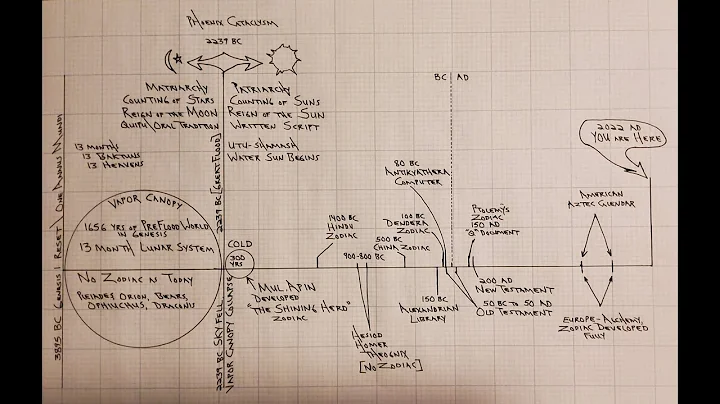 Phoenix Cataclysm
2239 BC
Matriarchy
Counting of Stars
Reign of the Moon
Oral Tradition
Patriarchy
Counting of Suns
Reign of the Sun
Written Script
13 Month
13 Baktuns
13 Heavens
Utu-Shamash
Water Sun Begins
3895 BC Genesis Reset
2239 BC [Great Flood]
Vapor Canopy
1656 yrs of PreFlood World
in Genesis
13 Month Lunar System
No Zodiac as Today
Pleiades, Orion, Bears,
Ophiuchus, Draconis
2239 BC Sky Fell
Vapor Canopy Collapse
Cold
300
yrs
Mul.Apin
Developed
"The Shining Herd"
Zodiac
1400 BC
Hindu
Zodiac
900-800 BC
Hesiod
Homer
[No Zodiac]
500 BC
China Zodiac
100 BC
Dendera
Zodiac
150 BC
Alexandrian
Library
BC | AD
Antikythera
Computer
Ptolemy's
Zodiac
150 AD
"Q" Document
200 AD
New Testament
50 BC to 50 AD
Old Testament
American
Aztec Calendar
Europe-Alchemy,
Zodiac Developed
Fully
2022 AD
You are Here